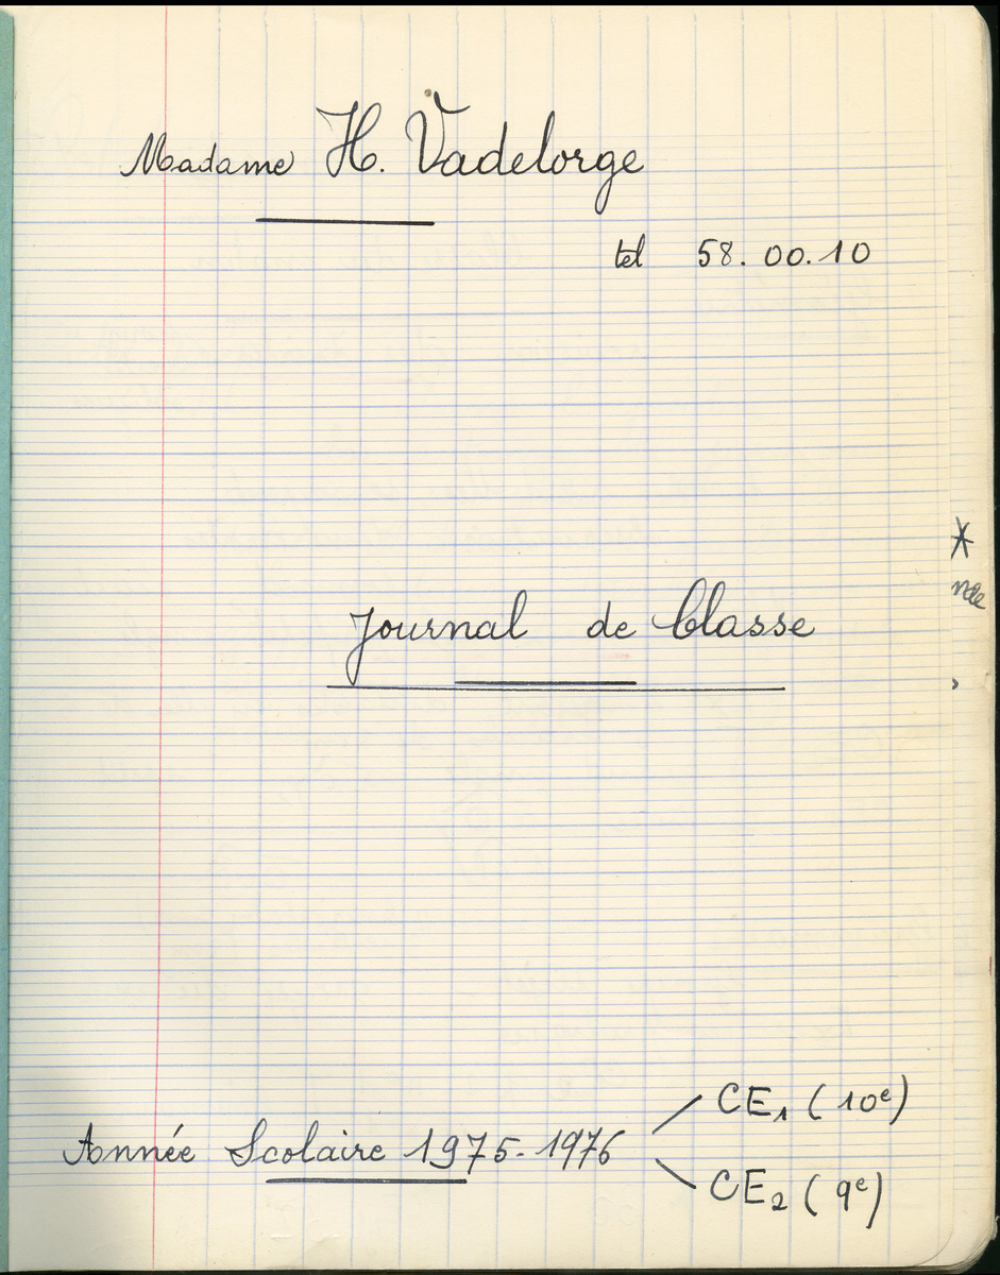 Madame H. Vadelorge
tel 58.00.10
Journal de Classe
Année Scolaire 1975-1976
CE1 (10e)
CE2 (9e)